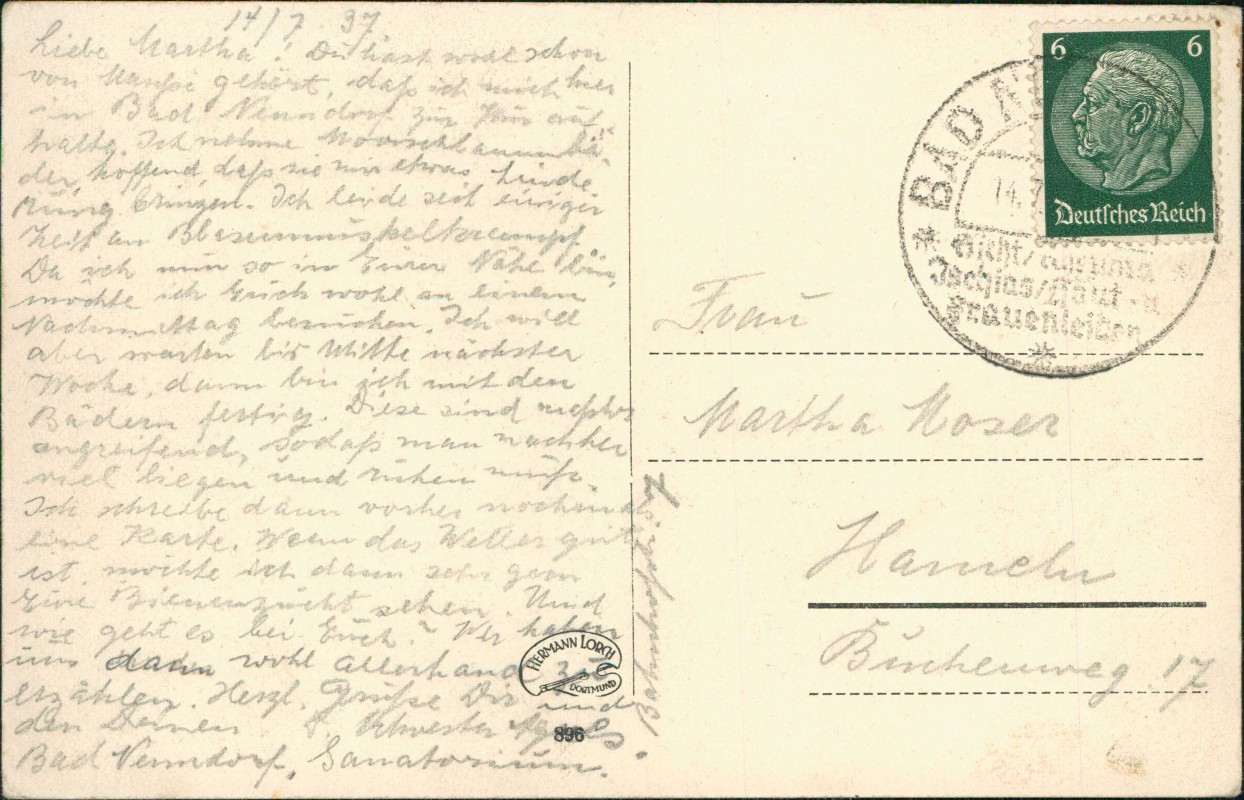 14/7 37
Liebe Martha! Du hast wohl schon
von gehört, daß ich mich hier
in Bad Nenndorf zur Kur auf
halte. Ich nehme Moorschlammbä-
der, hoffend, daß sie mir etwas Linde-
rung bringen. Ich leide seit einiger
Zeit an
Da ich nun so in Eurer Nähe bin,
möchte ich Euch wohl an einem
Nachmittag besuchen. Ich will
aber warten bis Mitte nächster
Woche, dann bin ich mit den
Bädern fertig. Diese sind
angreifend, sodaß man nachher
viel liegen und ruhen muß.
Ich schreibe dann vorher nochmals
eine Karte. Wenn das Wetter gut
ist, möchte ich dann sehr gern
Eure Bienenzucht sehen. Und
wie geht es bei Euch? Wir haben
uns dann wohl allerhand zu
erzählen. Herzl. Grüße Dir und
den Deinen Schwester Agnes.
Bad Nenndorf, Sanatorium.
Bahnhofstr. 7
HERMANN LORCH
DORTMUND
896
6 6
Deutsches Reich
BAD
14.7
Gicht/Rheuma
Ischias/Haut- u.
Frauenleiden
Frau
Martha Moser
Hameln
Buchenweg 17